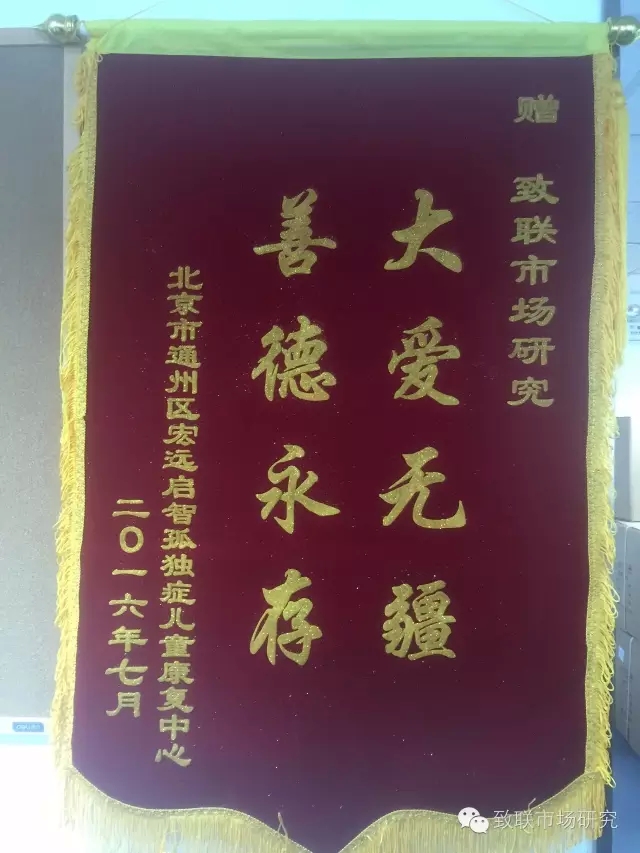 赠 致联市场研究
大爱无疆
善德永存
北京市通州区宏远启智孤独症儿童康复中心
二〇一六年七月
致联市场研究